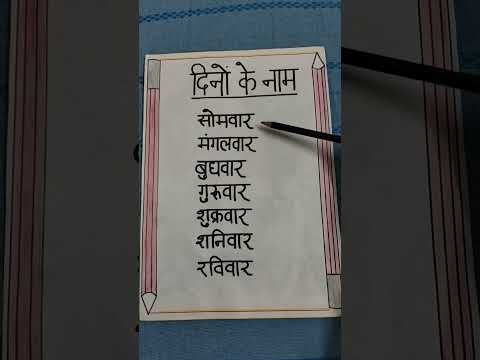 दिनों के नाम
सोमवार
मंगलवार
बुधवार
गुरुवार
शुक्रवार
शनिवार
रविवार